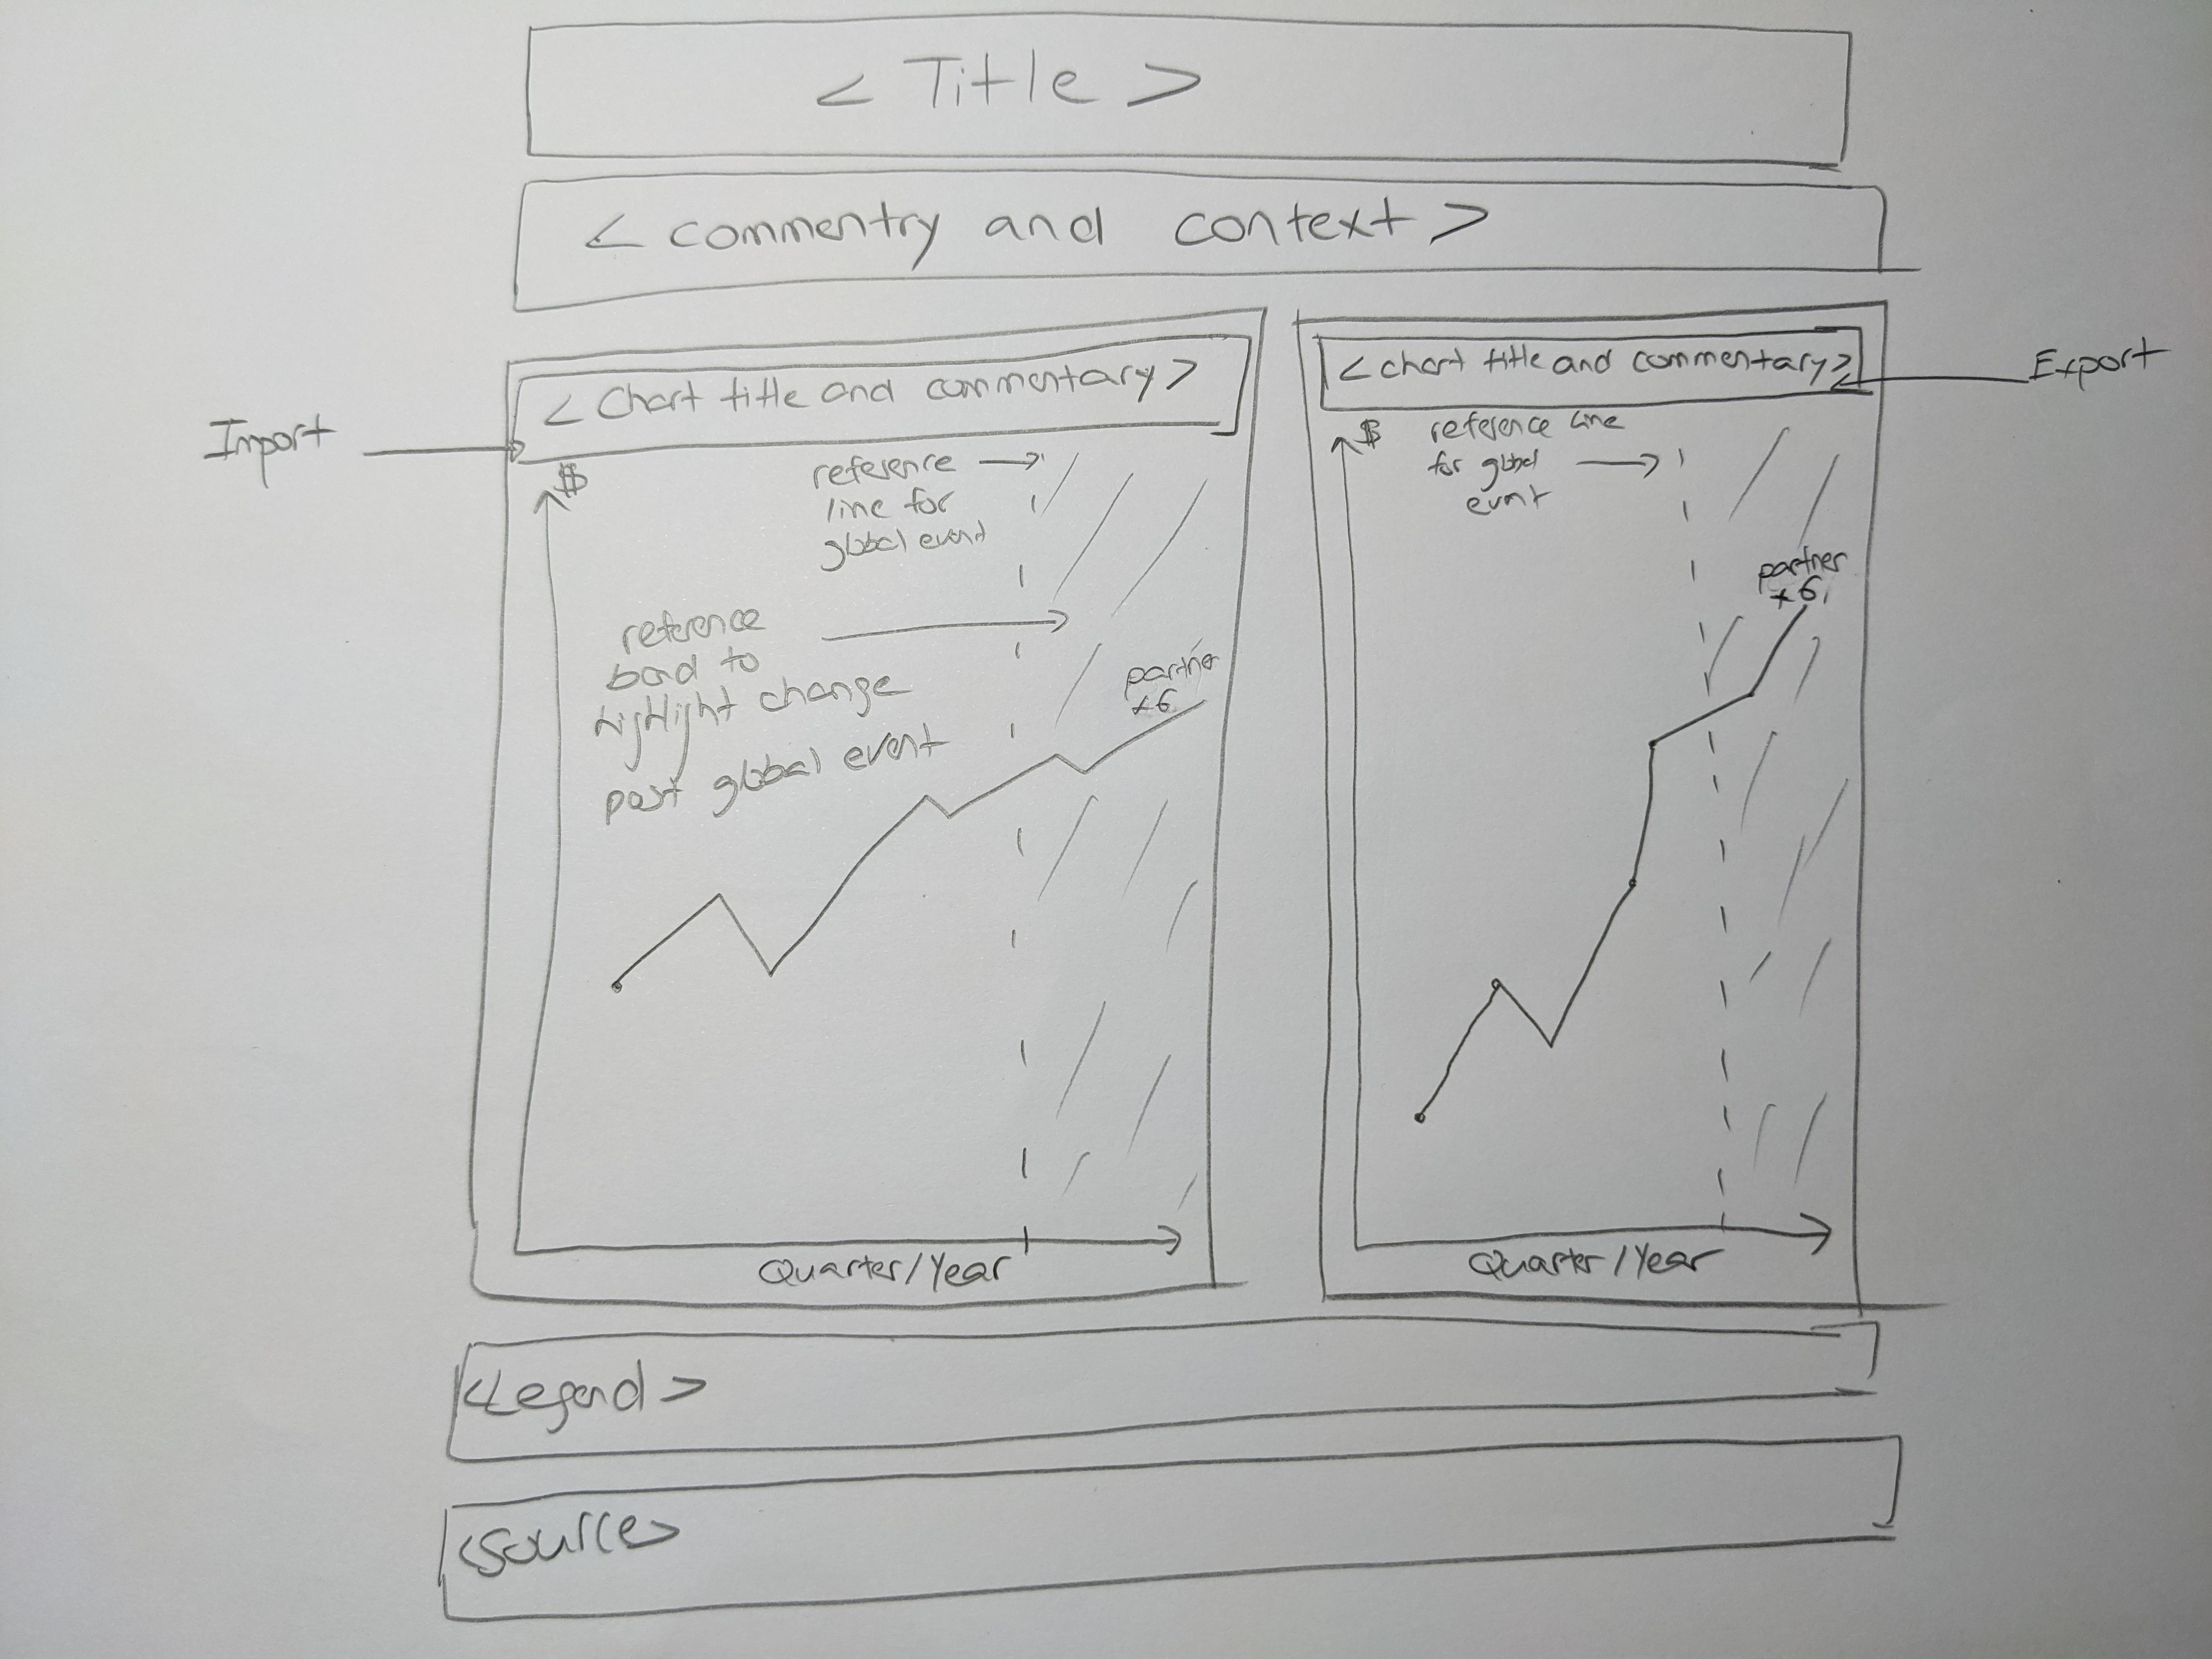 <Title>
<commentry and context>
Import
<Chart title and commentary>
$
reference
line for
global event
reference
band to
highlight change
post global event
partner
x6
Quarter/Year
Export
<chart title and commentary>
$
reference line
for global
event
partner
x6
Quarter/Year
<Legend>
<source>